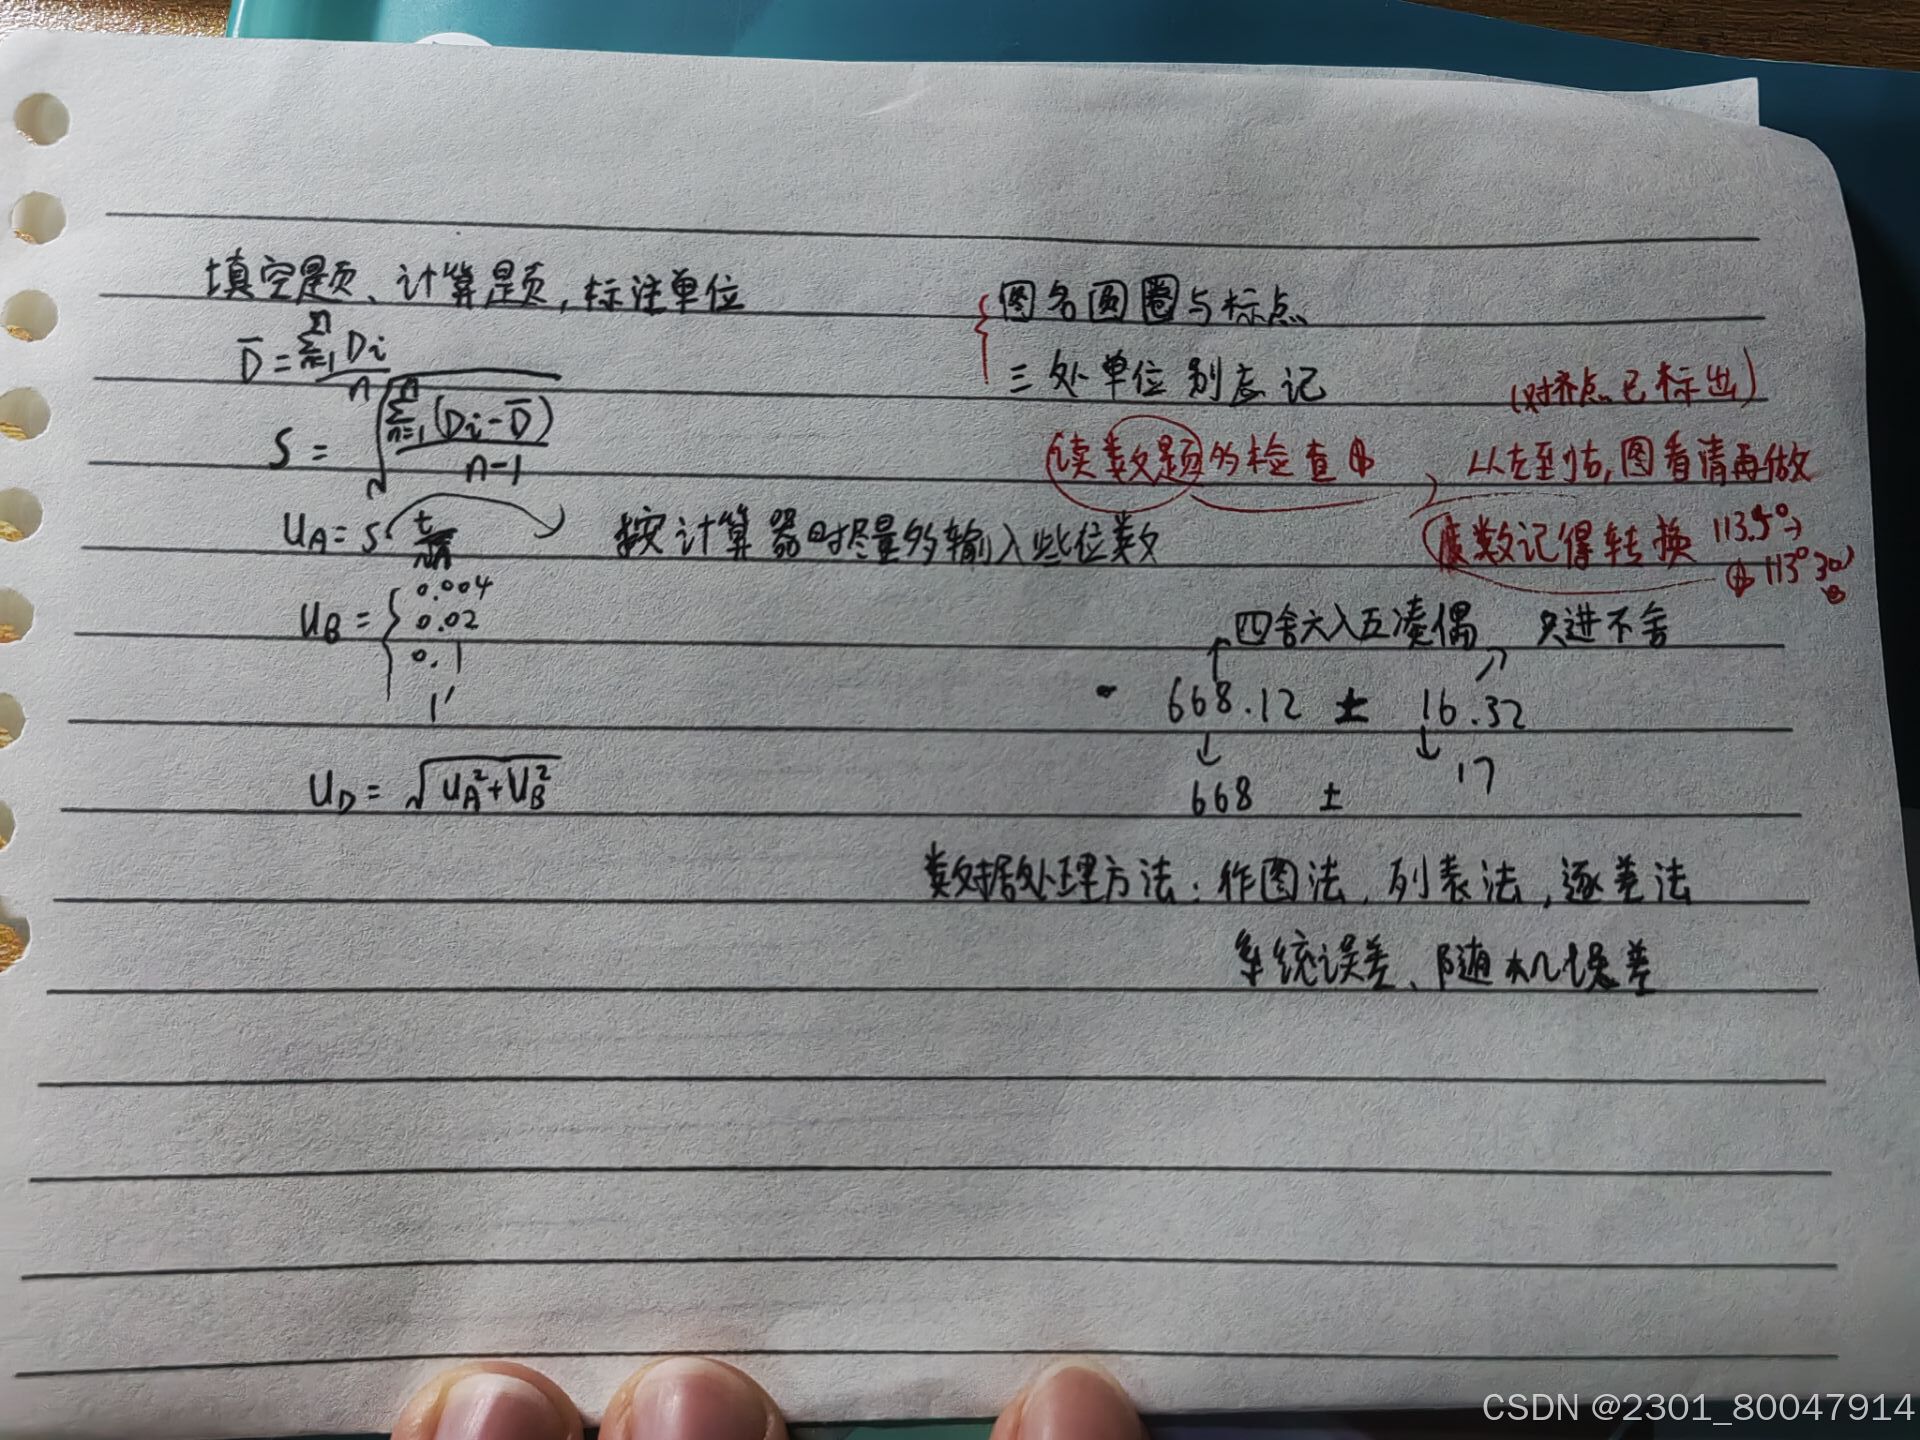 填空题、计算题,标注单位
D̄ = Σⁿₙ₌₁ Di / n
S = √(Σⁿₙ₌₁ (Di - D̄) / n-1)
UA = S t/√n
按计算器时尽量多输入些位数
UB = { 0.004
0.02
0.1
1′
UD = √(UA² + UB²)
图名圆圈与标点
三处单位别忘记
(对齐点已标出)
读数题的检查①
从左到右,图看清再做
度数记得转换 113.5°→
113°30′
四舍六入五凑偶 只进不舍
668.12 ± 16.32
668 ± 17
数据处理方法:作图法、列表法,逐差法
系统误差、随机误差
CSDN @2301_80047914